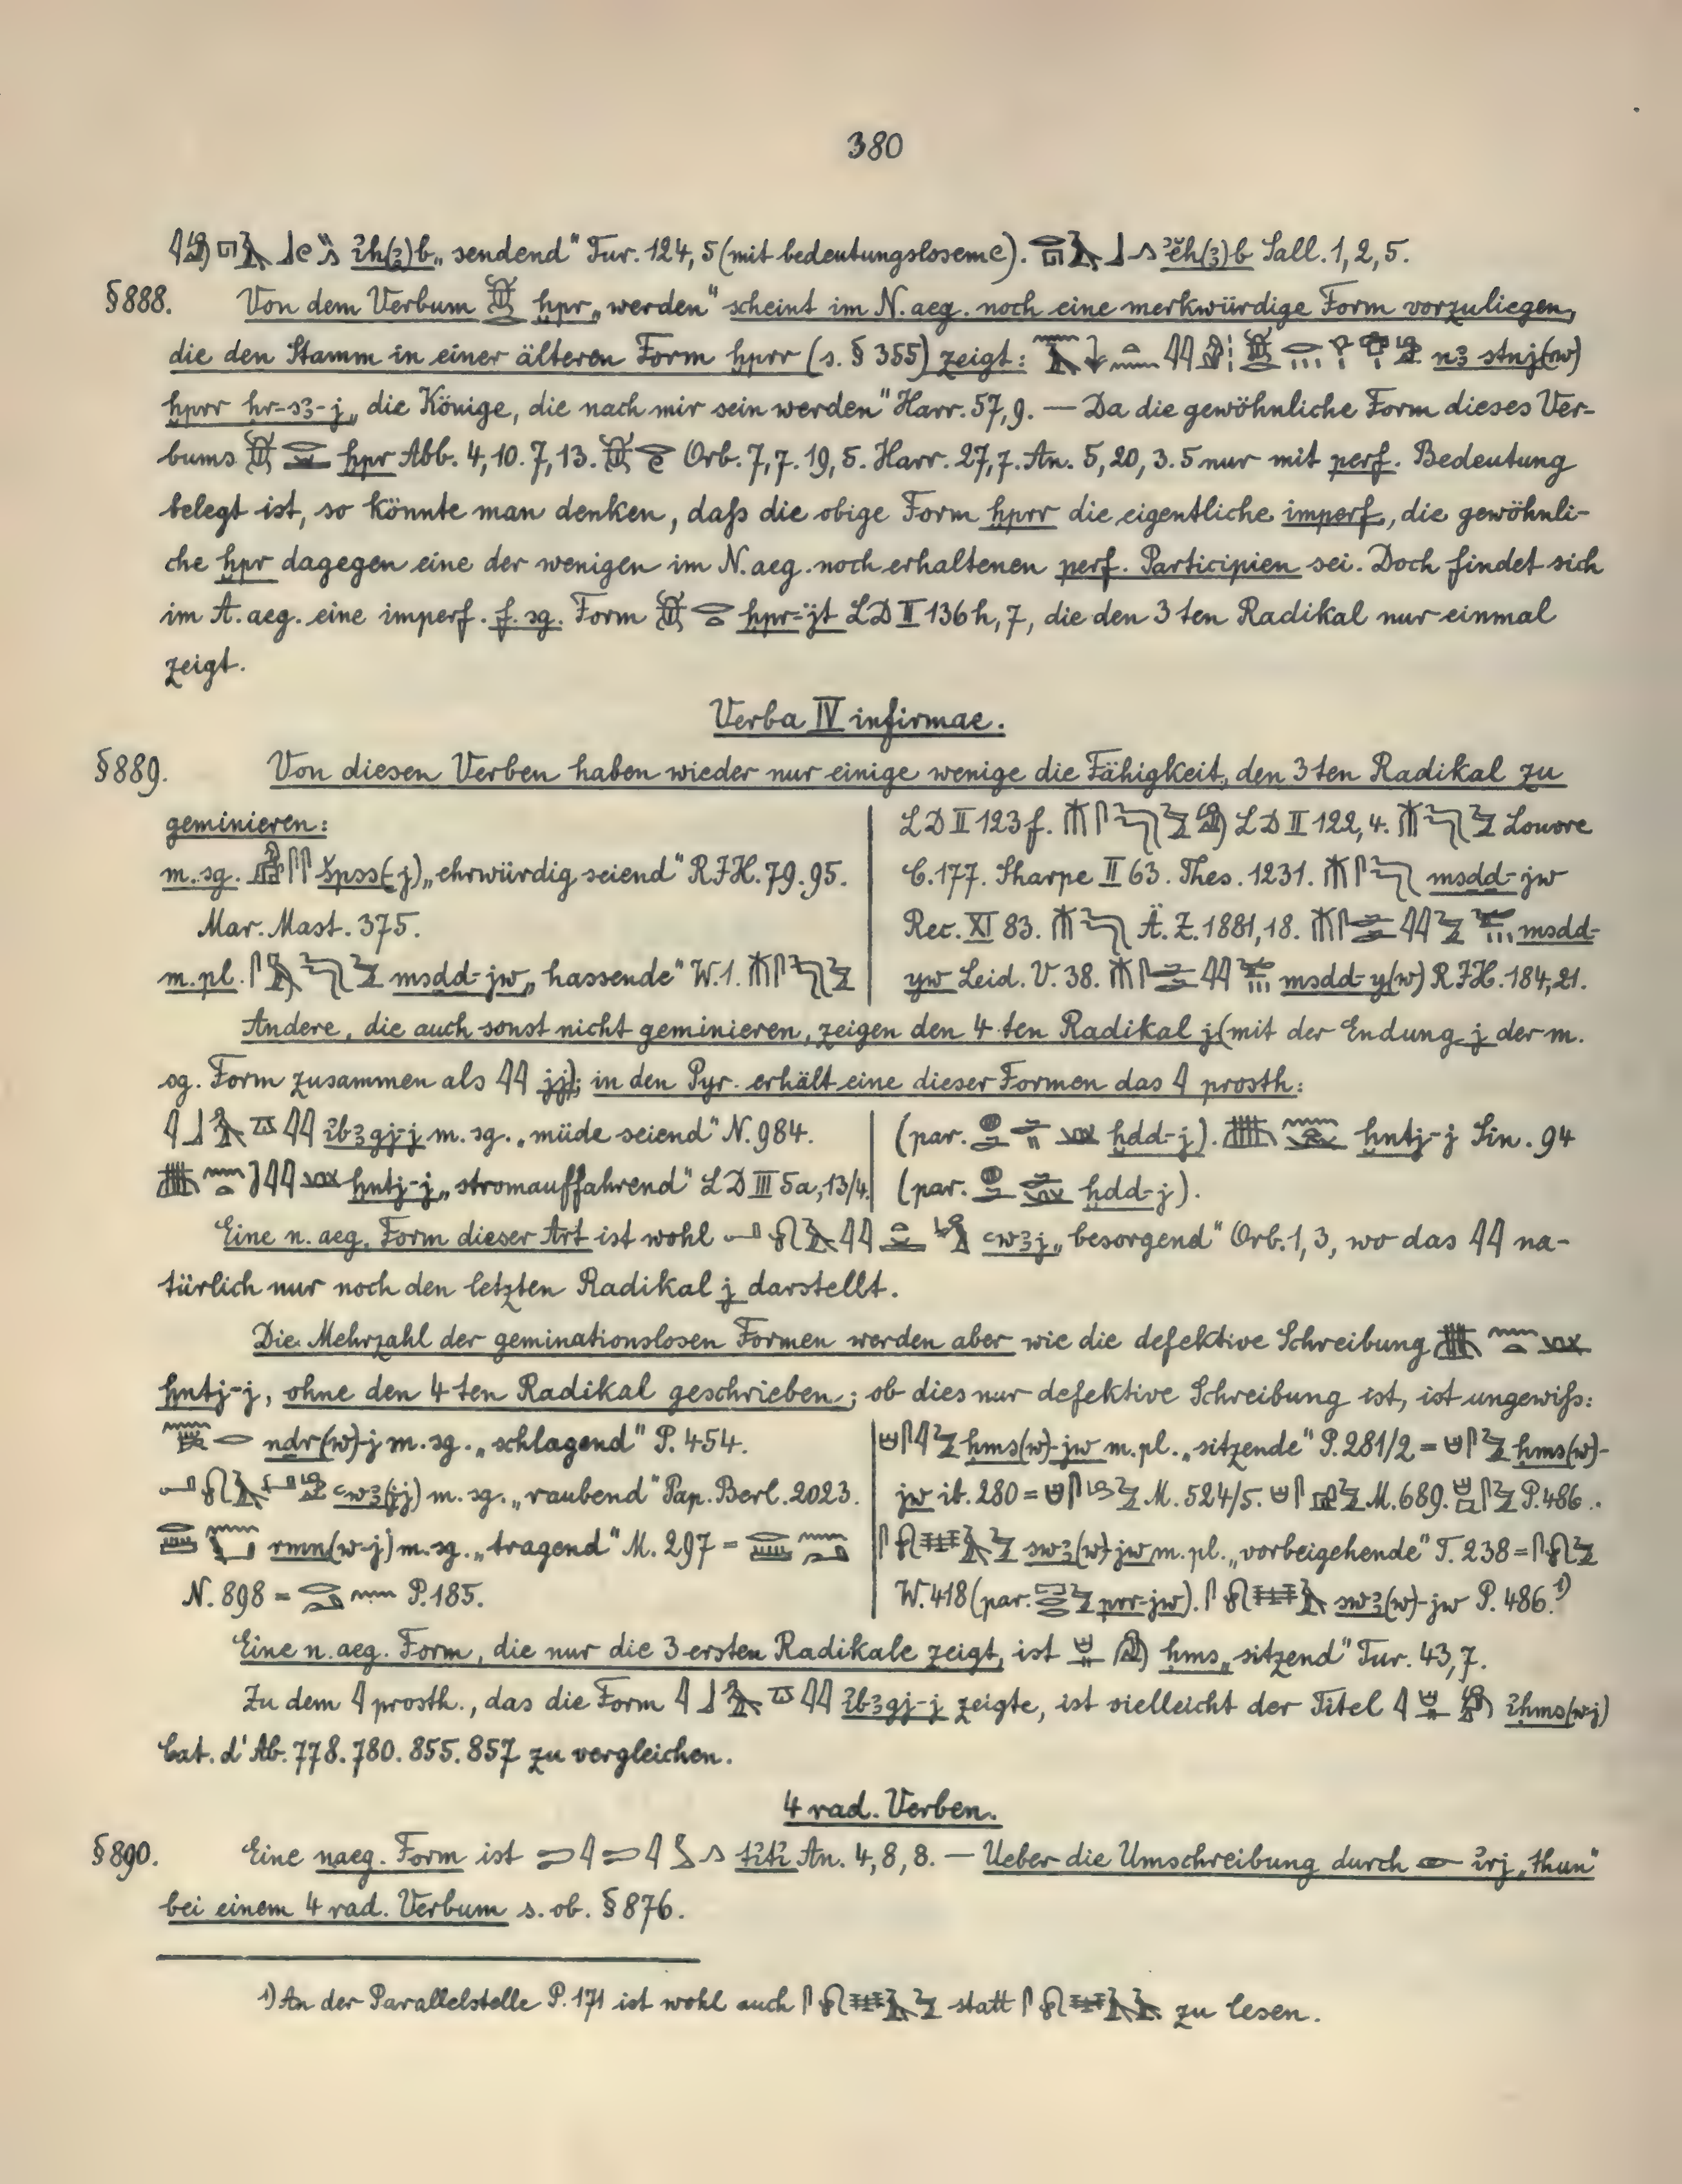 380
ỉh(ꜣ)b „sendend“ Tur. 124, 5 (mit bedeutungslosem e). ỉ҆h(ꜣ)b Sall. 1, 2, 5.
§888. Von dem Verbum ḫpr „werden“ scheint im N. aeg. noch eine merkwürdige Form vorzuliegen,
die den Stamm in einer älteren Form ḫprr (s. § 355) zeigt: nꜣ stnj(w)
ḫprr ḥr-sꜣ-j „die Könige, die nach mir sein werden“ Harr. 57, 9. — Da die gewöhnliche Form dieses Ver-
bums ḫpr Abb. 4, 10. 7, 13. Orb. 7, 7. 19, 5. Harr. 27, 7. An. 5, 20, 3. 5 nur mit perf. Bedeutung
belegt ist, so könnte man denken, daß die obige Form ḫprr die eigentliche imperf., die gewöhnli-
che ḫpr dagegen eine der wenigen im N. aeg. noch erhaltenen perf. Participien sei. Doch findet sich
im A. aeg. eine imperf. f. sg. Form ḫpr-jt LD II 136 h, 7, die den 3ten Radikal nur einmal
zeigt.
Verba IV infirmae.
§889. Von diesen Verben haben wieder nur einige wenige die Fähigkeit, den 3ten Radikal zu
geminieren:
m. sg. špss(-j) „ehrwürdig seiend“ R.I.H. 79. 95.
Mar. Mast. 375.
m. pl. msdd-jw „hassende“ W. 1.
LD II 123 f. LD II 122, 4. Louvre
C. 177. Sharpe II 63. Thes. 1231. msdd-jw
Rec. XI 83. Ä. Z. 1881, 18. msdd-
yw Leid. V. 38. msdd-y(w) R.I.H. 184, 21.
Andere, die auch sonst nicht geminieren, zeigen den 4ten Radikal j (mit der Endung -j der m.
sg. Form zusammen als 𓇋𓇋 jj); in den Pyr. erhält eine dieser Formen das 𓇋 prosth:
ỉbꜣgj-j m. sg. „müde seiend“ N. 984.
ḫntj-j „stromauffahrend“ LD III 5a, 13/4.
(par. ḫdd-j). ḫntj-j Sin. 94
(par. ḫdd-j).
Eine n. aeg. Form dieser Art ist wohl ꜥwꜣj „besorgend“ Orb. 1, 3, wo das 𓇋𓇋 na-
türlich nur noch den letzten Radikal j darstellt.
Die Mehrzahl der geminationslosen Formen werden aber wie die defektive Schreibung
ḫntj-j, ohne den 4ten Radikal geschrieben; ob dies nur defektive Schreibung ist, ist ungewiß:
ndr(w)-j m. sg. „schlagend“ P. 454.
ꜥwꜣ(jj) m. sg. „raubend“ Pap. Berl. 2023.
rmn(w-j) m. sg. „tragend“ M. 297 =
N. 898 = P. 185.
ḥms(w)-jw m. pl. „sitzende“ P. 281/2 = ḥms(w)-
jw ib. 280 = M. 524/5. M. 689. P. 486.
swꜣ(w)-jw m. pl. „vorbeigehende“ T. 238 =
W. 418 (par. prr-jw). swꜣ(w)-jw P. 486.¹)
Eine n. aeg. Form, die nur die 3 ersten Radikale zeigt, ist ḥms „sitzend“ Tur. 43, 7.
Zu dem 𓇋 prosth., das die Form ỉbꜣgj-j zeigte, ist vielleicht der Titel ỉḥms(w-j)
Cat. d'Ab. 778. 780. 855. 857 zu vergleichen.
4 rad. Verben.
§890. Eine naeg. Form ist tỉtỉ An. 4, 8, 8. — Ueber die Umschreibung durch ỉrj „thun“
bei einem 4 rad. Verbum s. ob. § 876.
¹) An der Parallelstelle P. 171 ist wohl auch statt zu lesen.